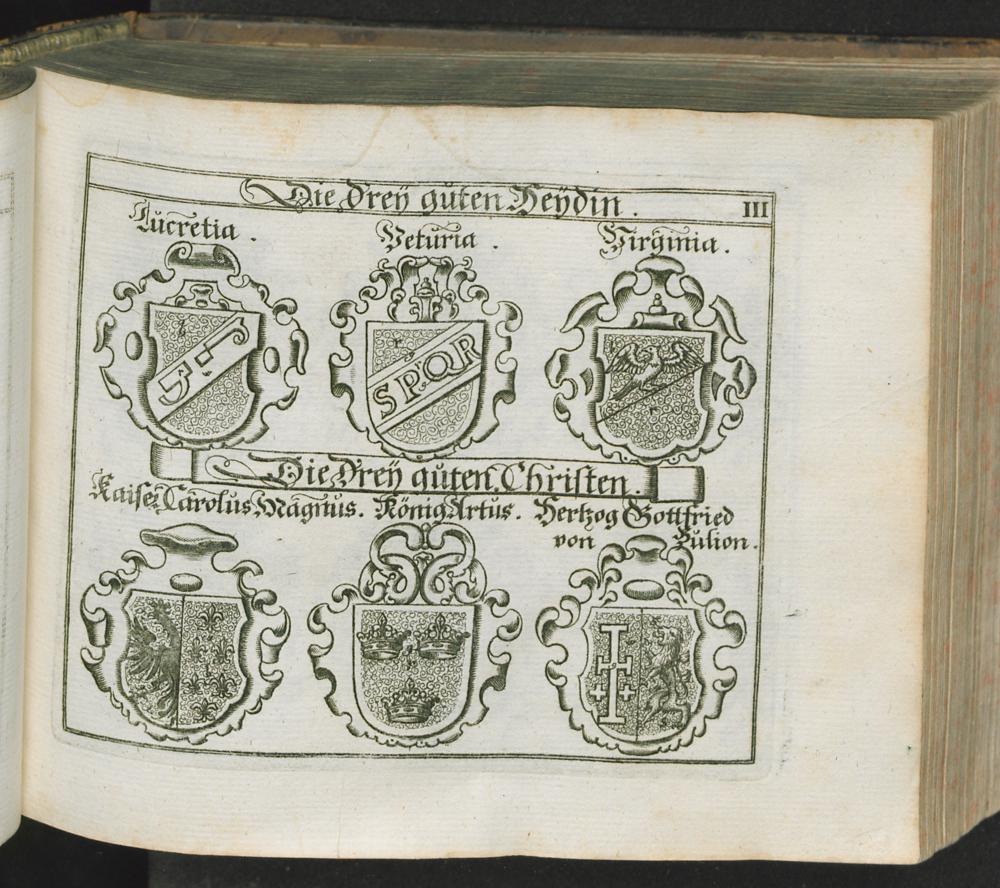 Die drey guten Heydin.
III
Lucretia.
Veturia.
Virginia.
SPQR
Die Drey guten Christen.
Kaiser Carolus Magnus. König Artus. Hertzog Gottfried
von Bulion.